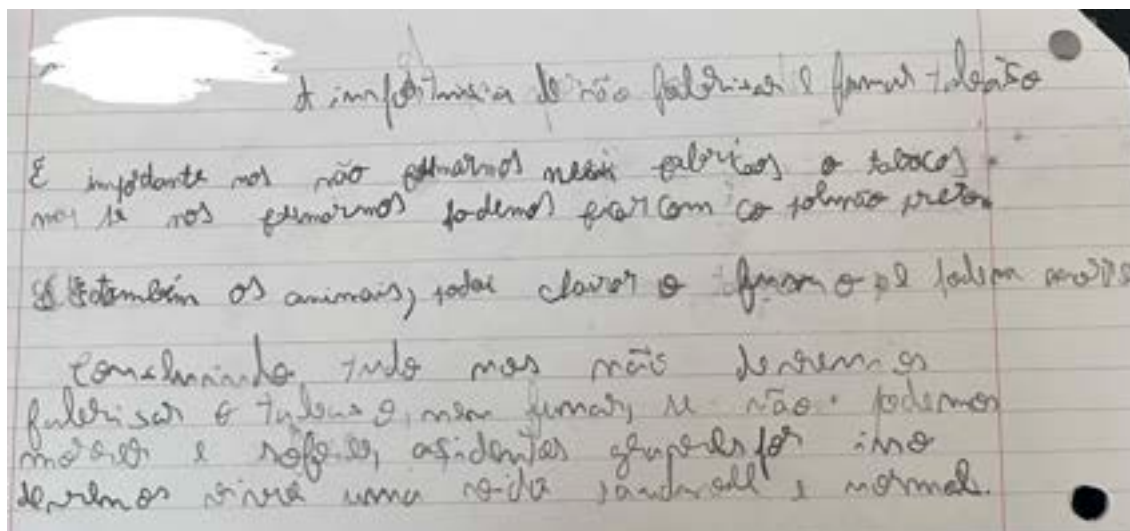 A importância de não fabrisar e fumar tabaco
É importante nos não fumarmos nem o tabacos
mas se nos fumarmos podemos ficar com o pulmão preto
também os animais, o fumo e podem morre
Concluindo tudo nos não devemos
fabrisar o tabaco, nem fumar, se não podemos
morrer e sofrer, asidentes por isso
devemos vivrê uma vida saudavell e normal.